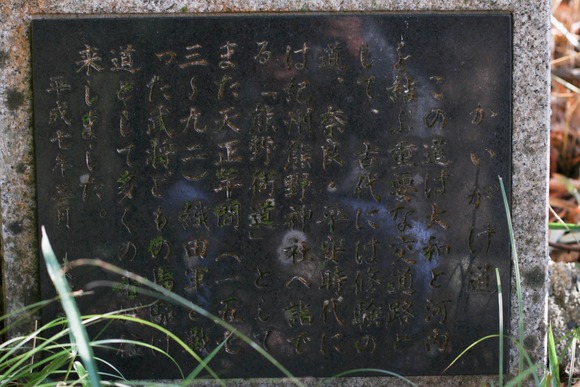 かいがけ道
この道は大和と河内
を結ぶ重要な交通路と
して、古代には修験の
道、奈良・平安時代に
は紀州熊野神社へ詣で
る「熊野街道」として
また天正年間(一五七
三〜九二)織田軍と戦
った武将どもの
道として多くの
来しました。
平成七年三月